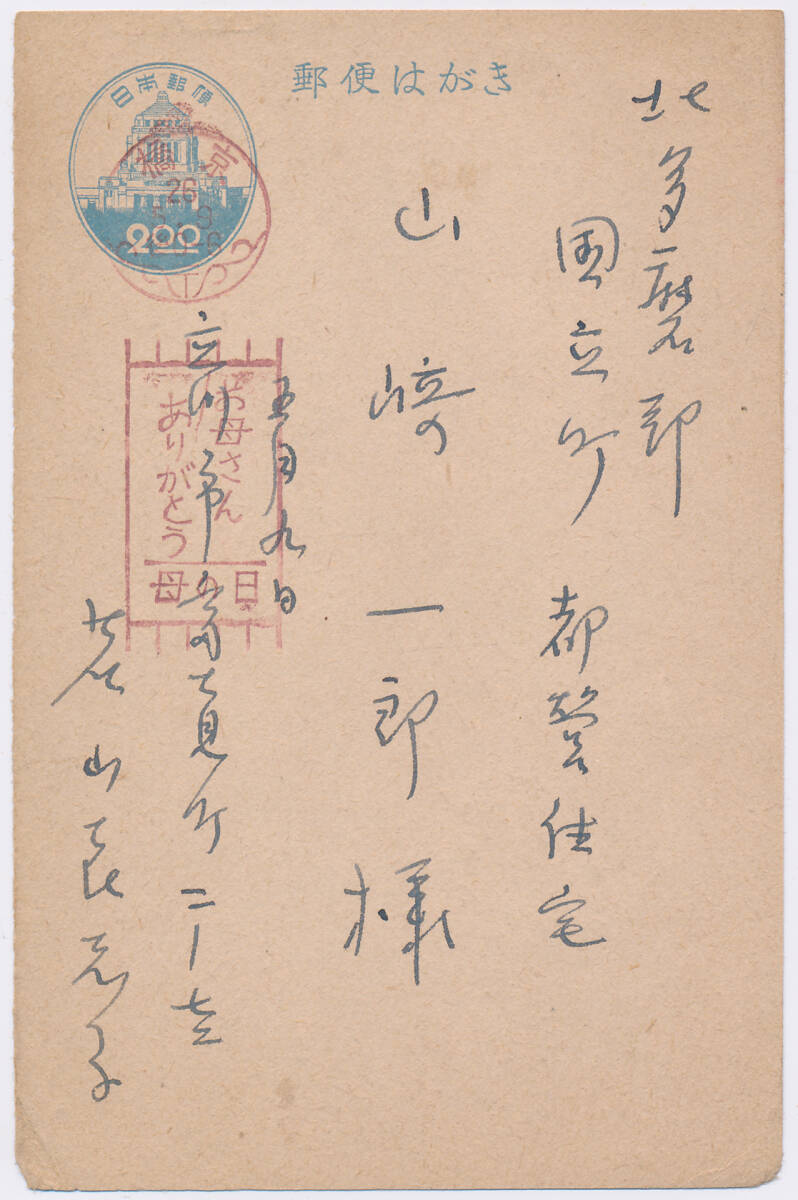 郵便はがき
日本郵便
2.00
京橋
26
北多磨郡
国立町 都営住宅
山崎 一郎 様
五月九日
立川市富士見町二ー
山
お母さん
ありがとう
母の日